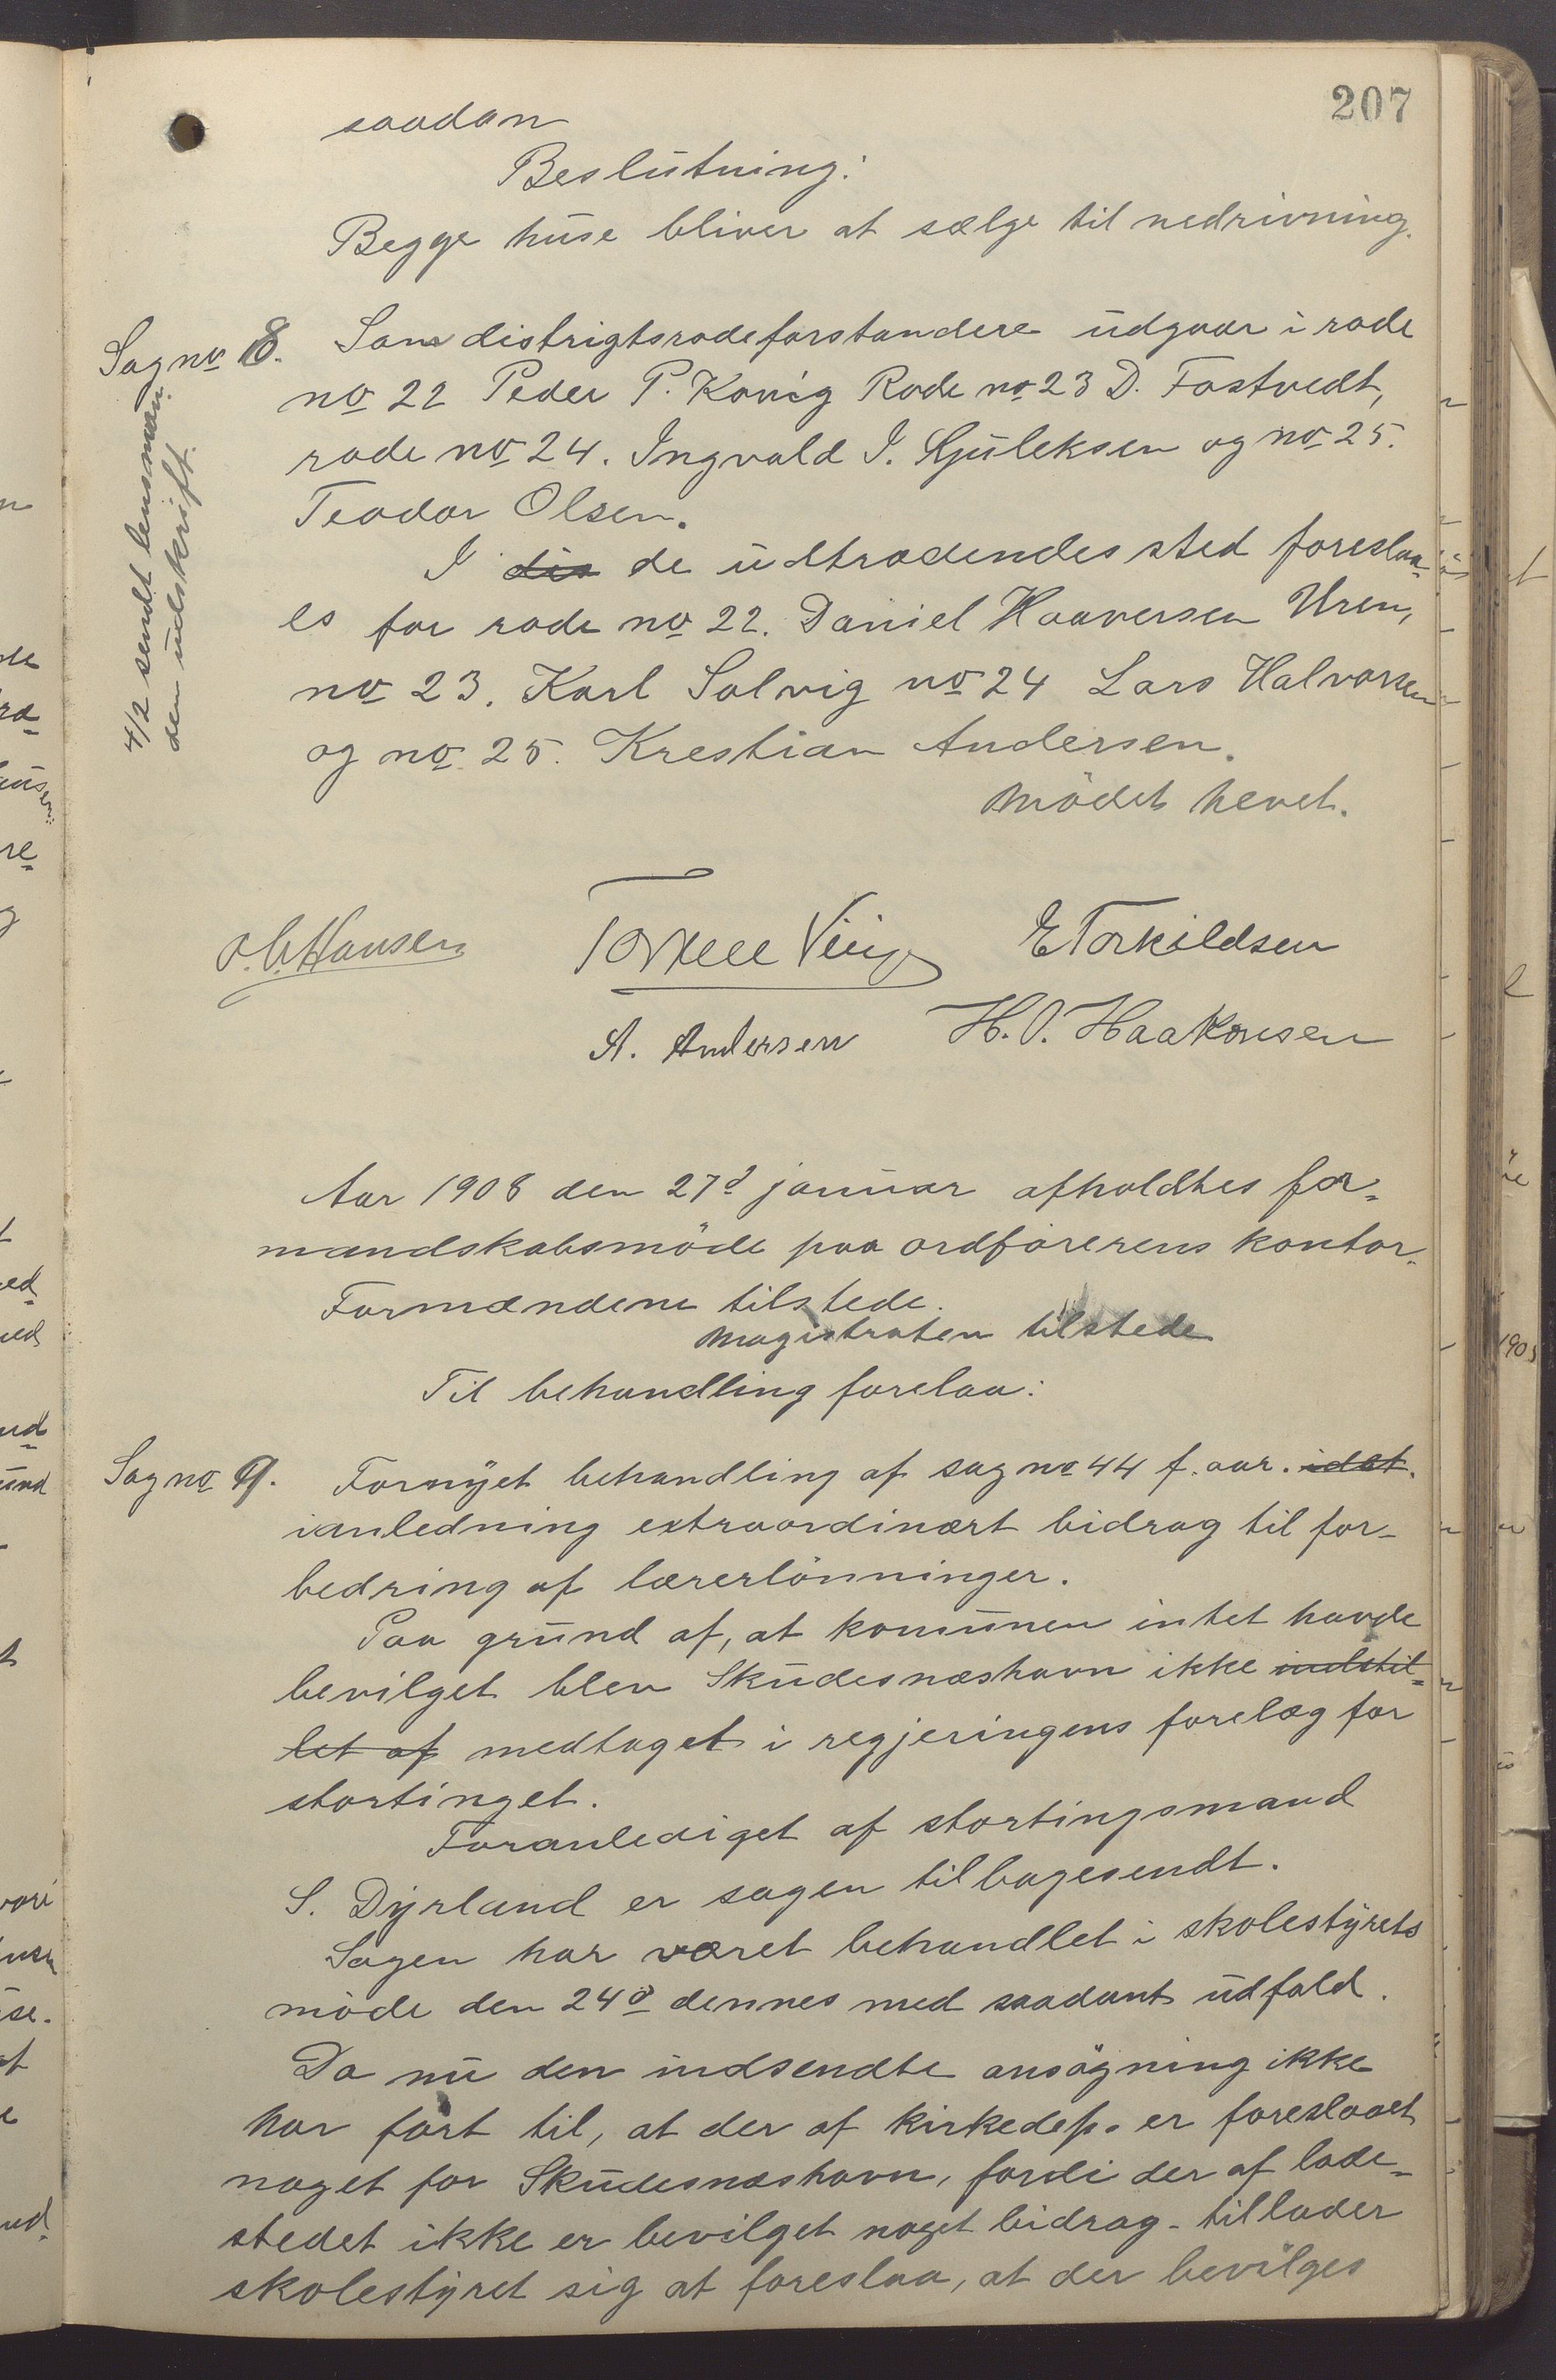 207
saadan
Beslutning:
Begge huse bliver at sælge til nedrivning.
Sag no 8. Som distrigtsrodeforstandere udgaar i rode
no 22 Peder P. Kønig Rode no 23 D. Fostvedt,
rode no 24. Ingvald I. Hjuleksen og no 25.
Teodor Olsen.
I dis de udtrædendes sted foreslaa-
es for rode no 22. Daniel Haaversen Uren,
no 23. Karl Solvig no 24 Lars Halvorsen
og no 25. Krestian Andersen.
Mödet hevet.
4/2 sendt lensman-
den udskrift.
O.C. Hansen Torkell Viig E Torkildsen
A. Andersen H.O. Haakonsen
Aar 1908 den 27d januar afholdtes for-
mandskabsmöde paa ordförerens kontor.
Formændene tilstede.
Magistraten tilstede
Til behandling forelaa:
Sag no 9. Fornyet behandling af sag no 44 f. aar. idet.
ianledning extraordinært bidrag til for-
bedring af lærerlönninger.
Paa grund af, at komunen intet havde
bevilget blev Skudesnæshavn ikke indstil-
let af medtaget i regjeringens forelæg for
stortinget.
Foranlediget af stortingsmand
S. Dyrland er sagen tilbagesendt.
Sagen har været behandlet i skolestyrets
möde den 24d dennes med saadant udfald.
Da nu den indsendte ansögning ikke
har fört til, at der af kirkedep. er foreslaaet
noget for Skudesnæshavn, fordi der af lade-
stedet ikke er bevilget noget bidrag - tillader
skolestyret sig at foreslaa, at der bevilges